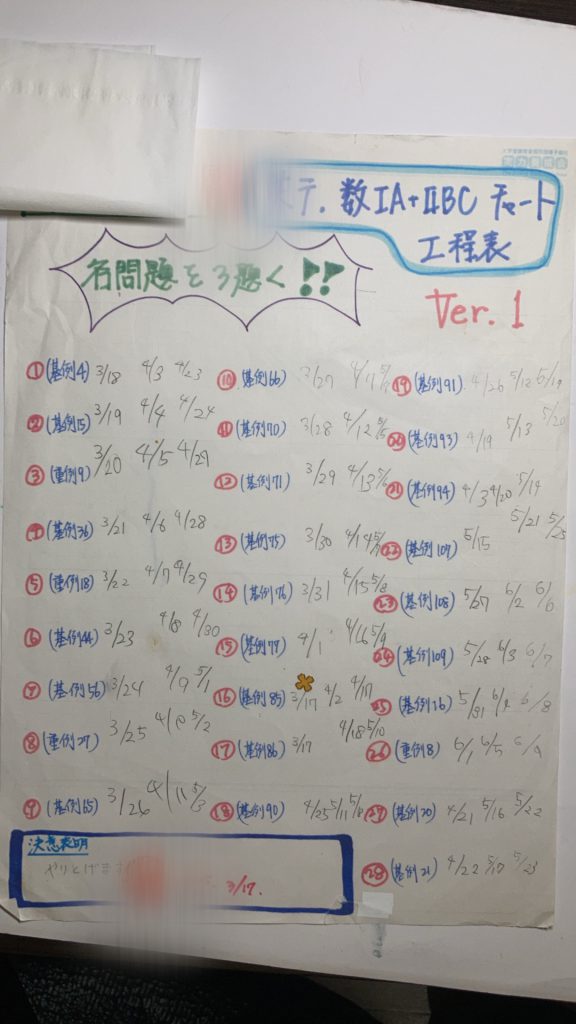 数IA+IIBC チャート
工程表
Ver. 1
名問題を3聴く!!
① (基例4) 3/18 4/3 4/23
② (基例15) 3/19 4/4 4/24
③ (重例9) 3/20 4/5 4/29
④ (基例36) 3/21 4/6 4/28
⑤ (重例18) 3/22 4/7 4/29
⑥ (基例44) 3/23 4/8 4/30
⑦ (基例56) 3/24 4/9 5/1
⑧ (重例27) 3/25 4/10 5/2
⑨ (基例65) 3/26 4/11 5/3
⑩ (基例66) 3/27
⑪ (基例70) 3/28 4/12 5/5
⑫ (基例71) 3/29 4/13 5/6
⑬ (基例75) 3/30 4/14 5/7
⑭ (基例76) 3/31 4/15 5/8
⑮ (基例79) 4/1 4/16 5/9
⑯ (基例85) 3/17 4/2 4/17
⑰ (基例86) 3/17 4/18 5/10
⑱ (基例90) 4/25 5/11 5/18
⑲ (基例91) 4/26 5/12 5/19
⑳ (基例93) 4/19 5/13 5/20
㉑ (基例94) 4/3 4/20 5/14
㉒ (基例107) 5/15 5/21 5/25
㉓ (基例108) 5/27 6/2 6/6
㉔ (基例109) 5/28 6/3 6/7
㉕ (基例16) 5/31 6/4 6/8
㉖ (重例8) 6/1 6/5 6/9
㉗ (基例20) 4/21 5/16 5/22
㉘ (基例21) 4/22 5/17 5/23
決意表明
やりとげます
3/17.